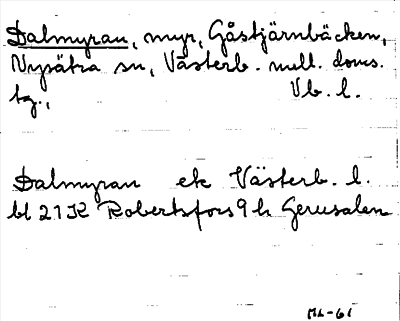 Dalmyran, myr, Gåstjärnbäcken,
Nysätra sn, Västerb. mell. doms.
tg., Vb. l.
Dalmyran ek Västerb. l.
bl 21K Robertsfors 9 h Gerusalen
ML-61